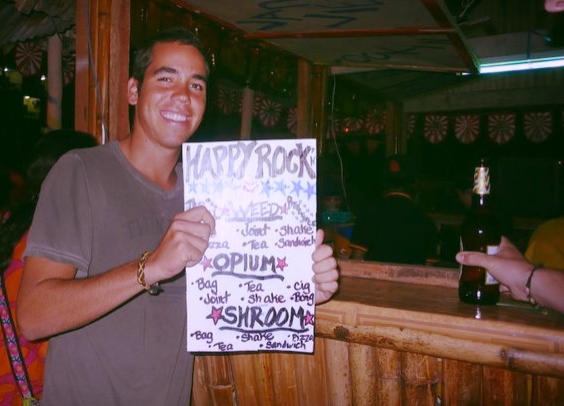 HAPPY ROCK
WEED
Joint • shake
Tea • Sandwich
OPIUM
• Bag • Tea • Cig
• Joint • shake • Bong
SHROOM
• Bag • shake • Pizza
• Tea • Sandwich